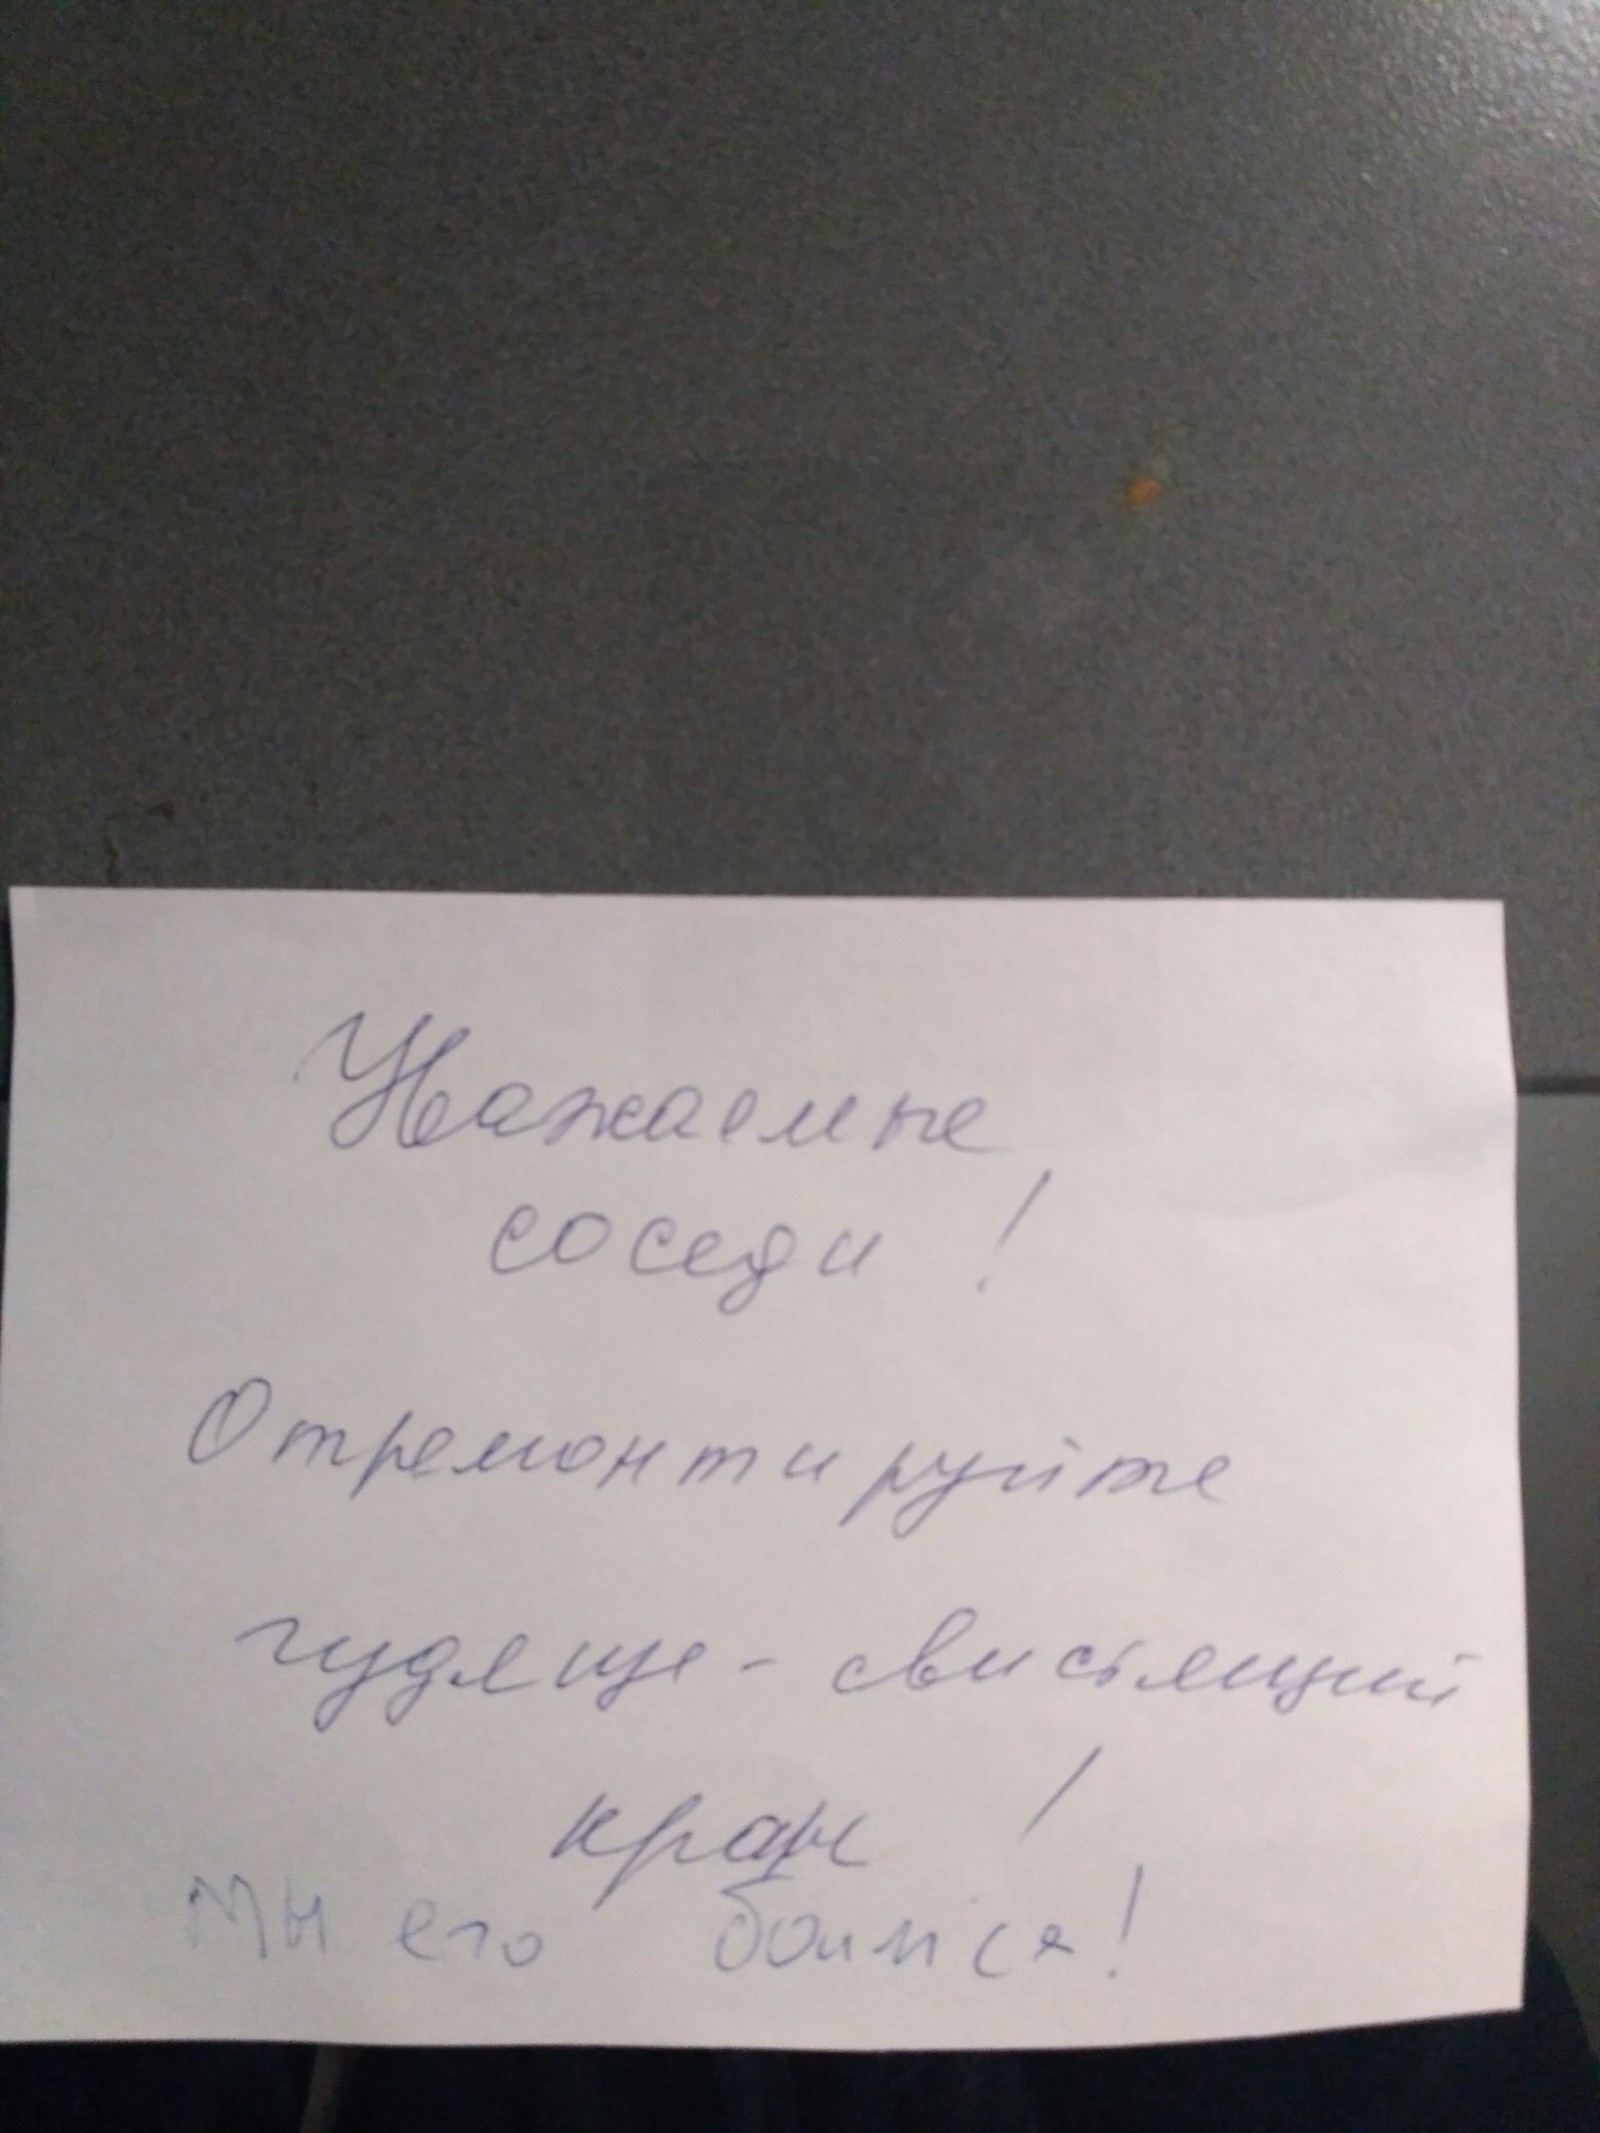 Уважаемые
соседи!
Отремонтируйте
гудяще-свисьящий
кран!
Мы его боимся!